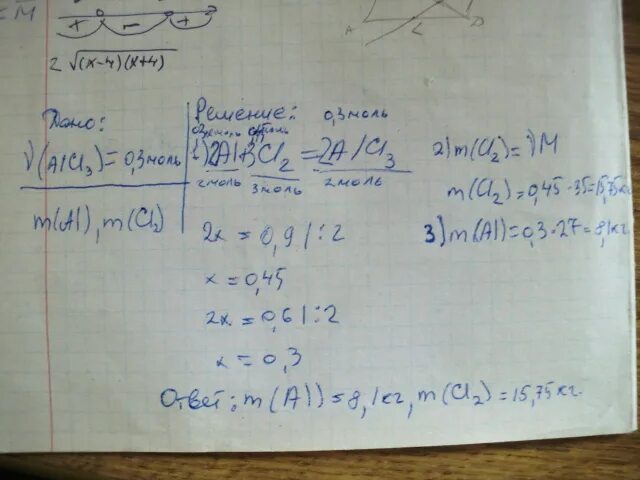 = M
+ − +
2 √(x-4)(x+4)
A L D
Дано:
ν(AlCl₃)=0,3моль
m(Al), m(Cl₂)
Решение:
0,3моль
1) 2Al+3Cl₂ = 2AlCl₃
2моль 3моль 2моль
2x = 0,9 |:2
x = 0,45
2x = 0,6 |:2
x = 0,3
2) m(Cl₂) = νM
m(Cl₂) = 0,45·35=15,75кг
3) m(Al) = 0,3·27=8,1кг
Ответ: m(Al)=8,1кг, m(Cl₂)=15,75кг.